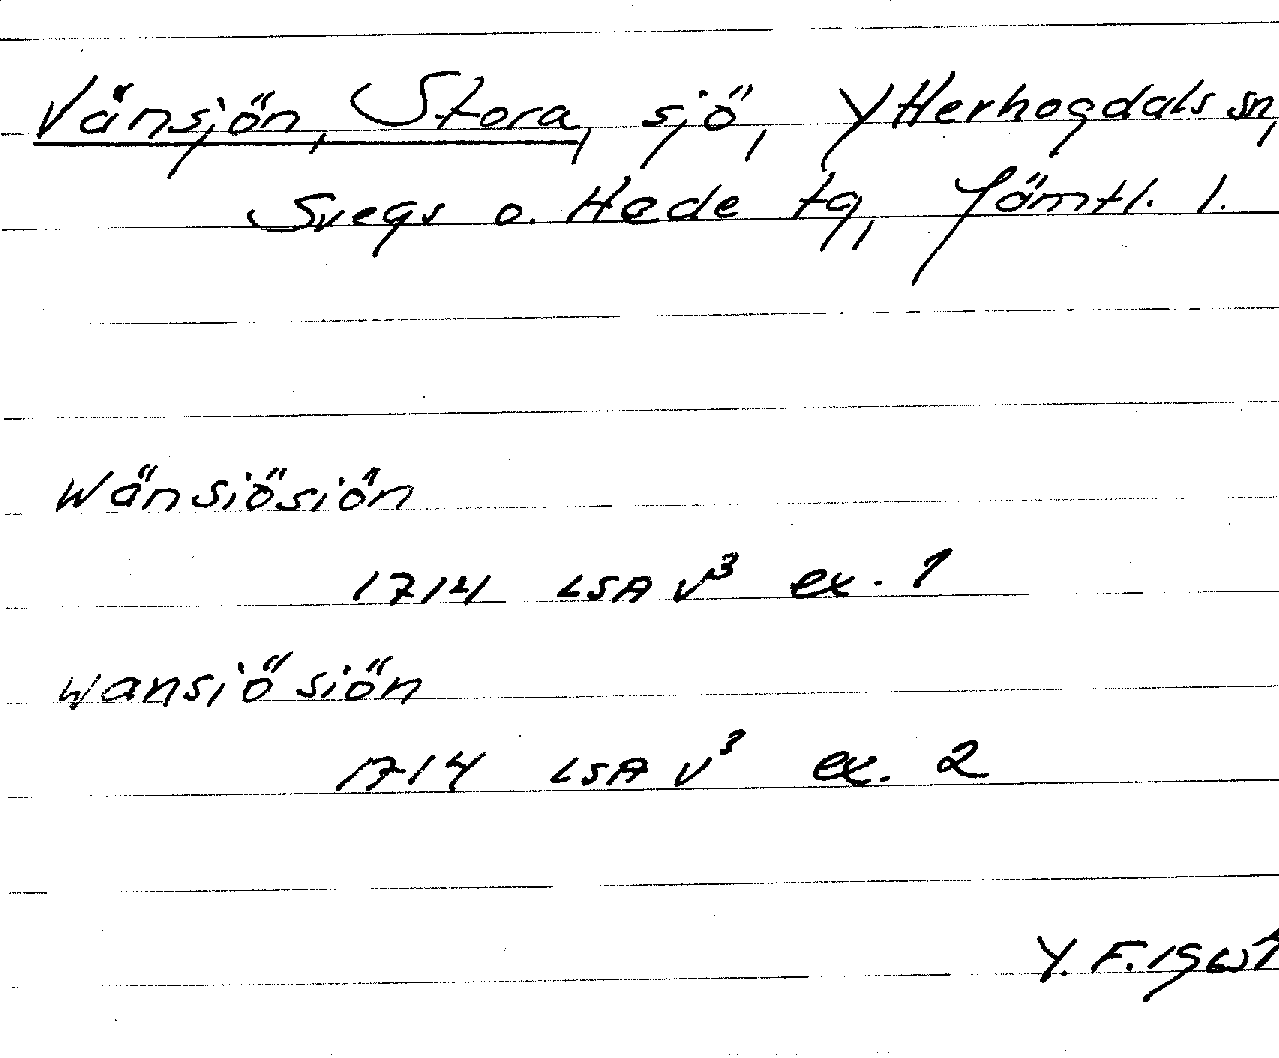 Vänsjön, Stora, sjö, Ytterhogdals sn,
Svegs o. Hede tg, Jämtl. l.
Wänsiösiön
1714 LSA V³ ex. 1
Wansiösiön
1714 LSA V³ ex. 2
Y. F.